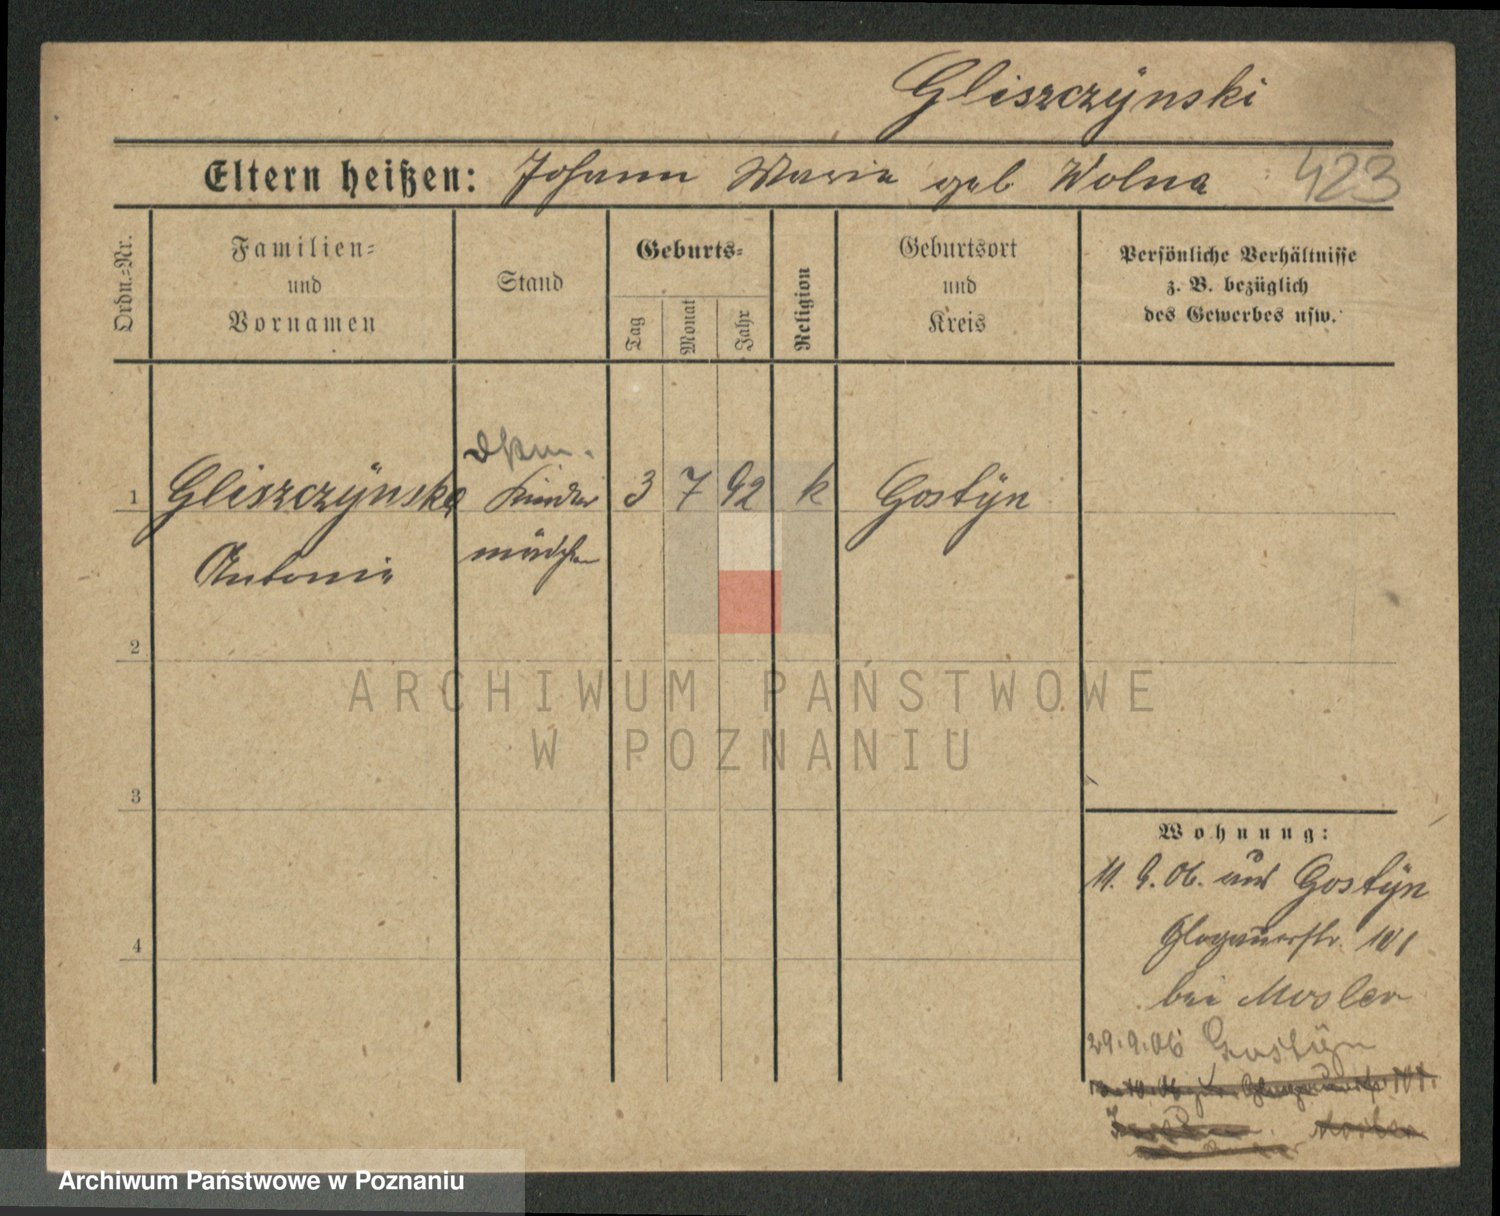 Gliszczÿnski
Eltern heißen: Johann Marie geb Wolna 423
Ordn.=Nr.
Familien=
und
Vornamen
Stand
Geburts=
Tag
Monat
Jahr
Religion
Geburtsort
und
Kreis
Persönliche Verhältnisse
z. B. bezüglich
des Gewerbes usw.
1 Gliszczÿnska Kinder 3 7 92 k Gostÿn
Antonie mädchen
2
3
4
ARCHIWUM PAŃSTWOWE
W POZNANIU
Wohnung:
11. 9. 06. aus Gostÿn
Glogauerstr. 101
bei Mosler
29.9.06 Gostÿn
Archiwum Państwowe w Poznaniu